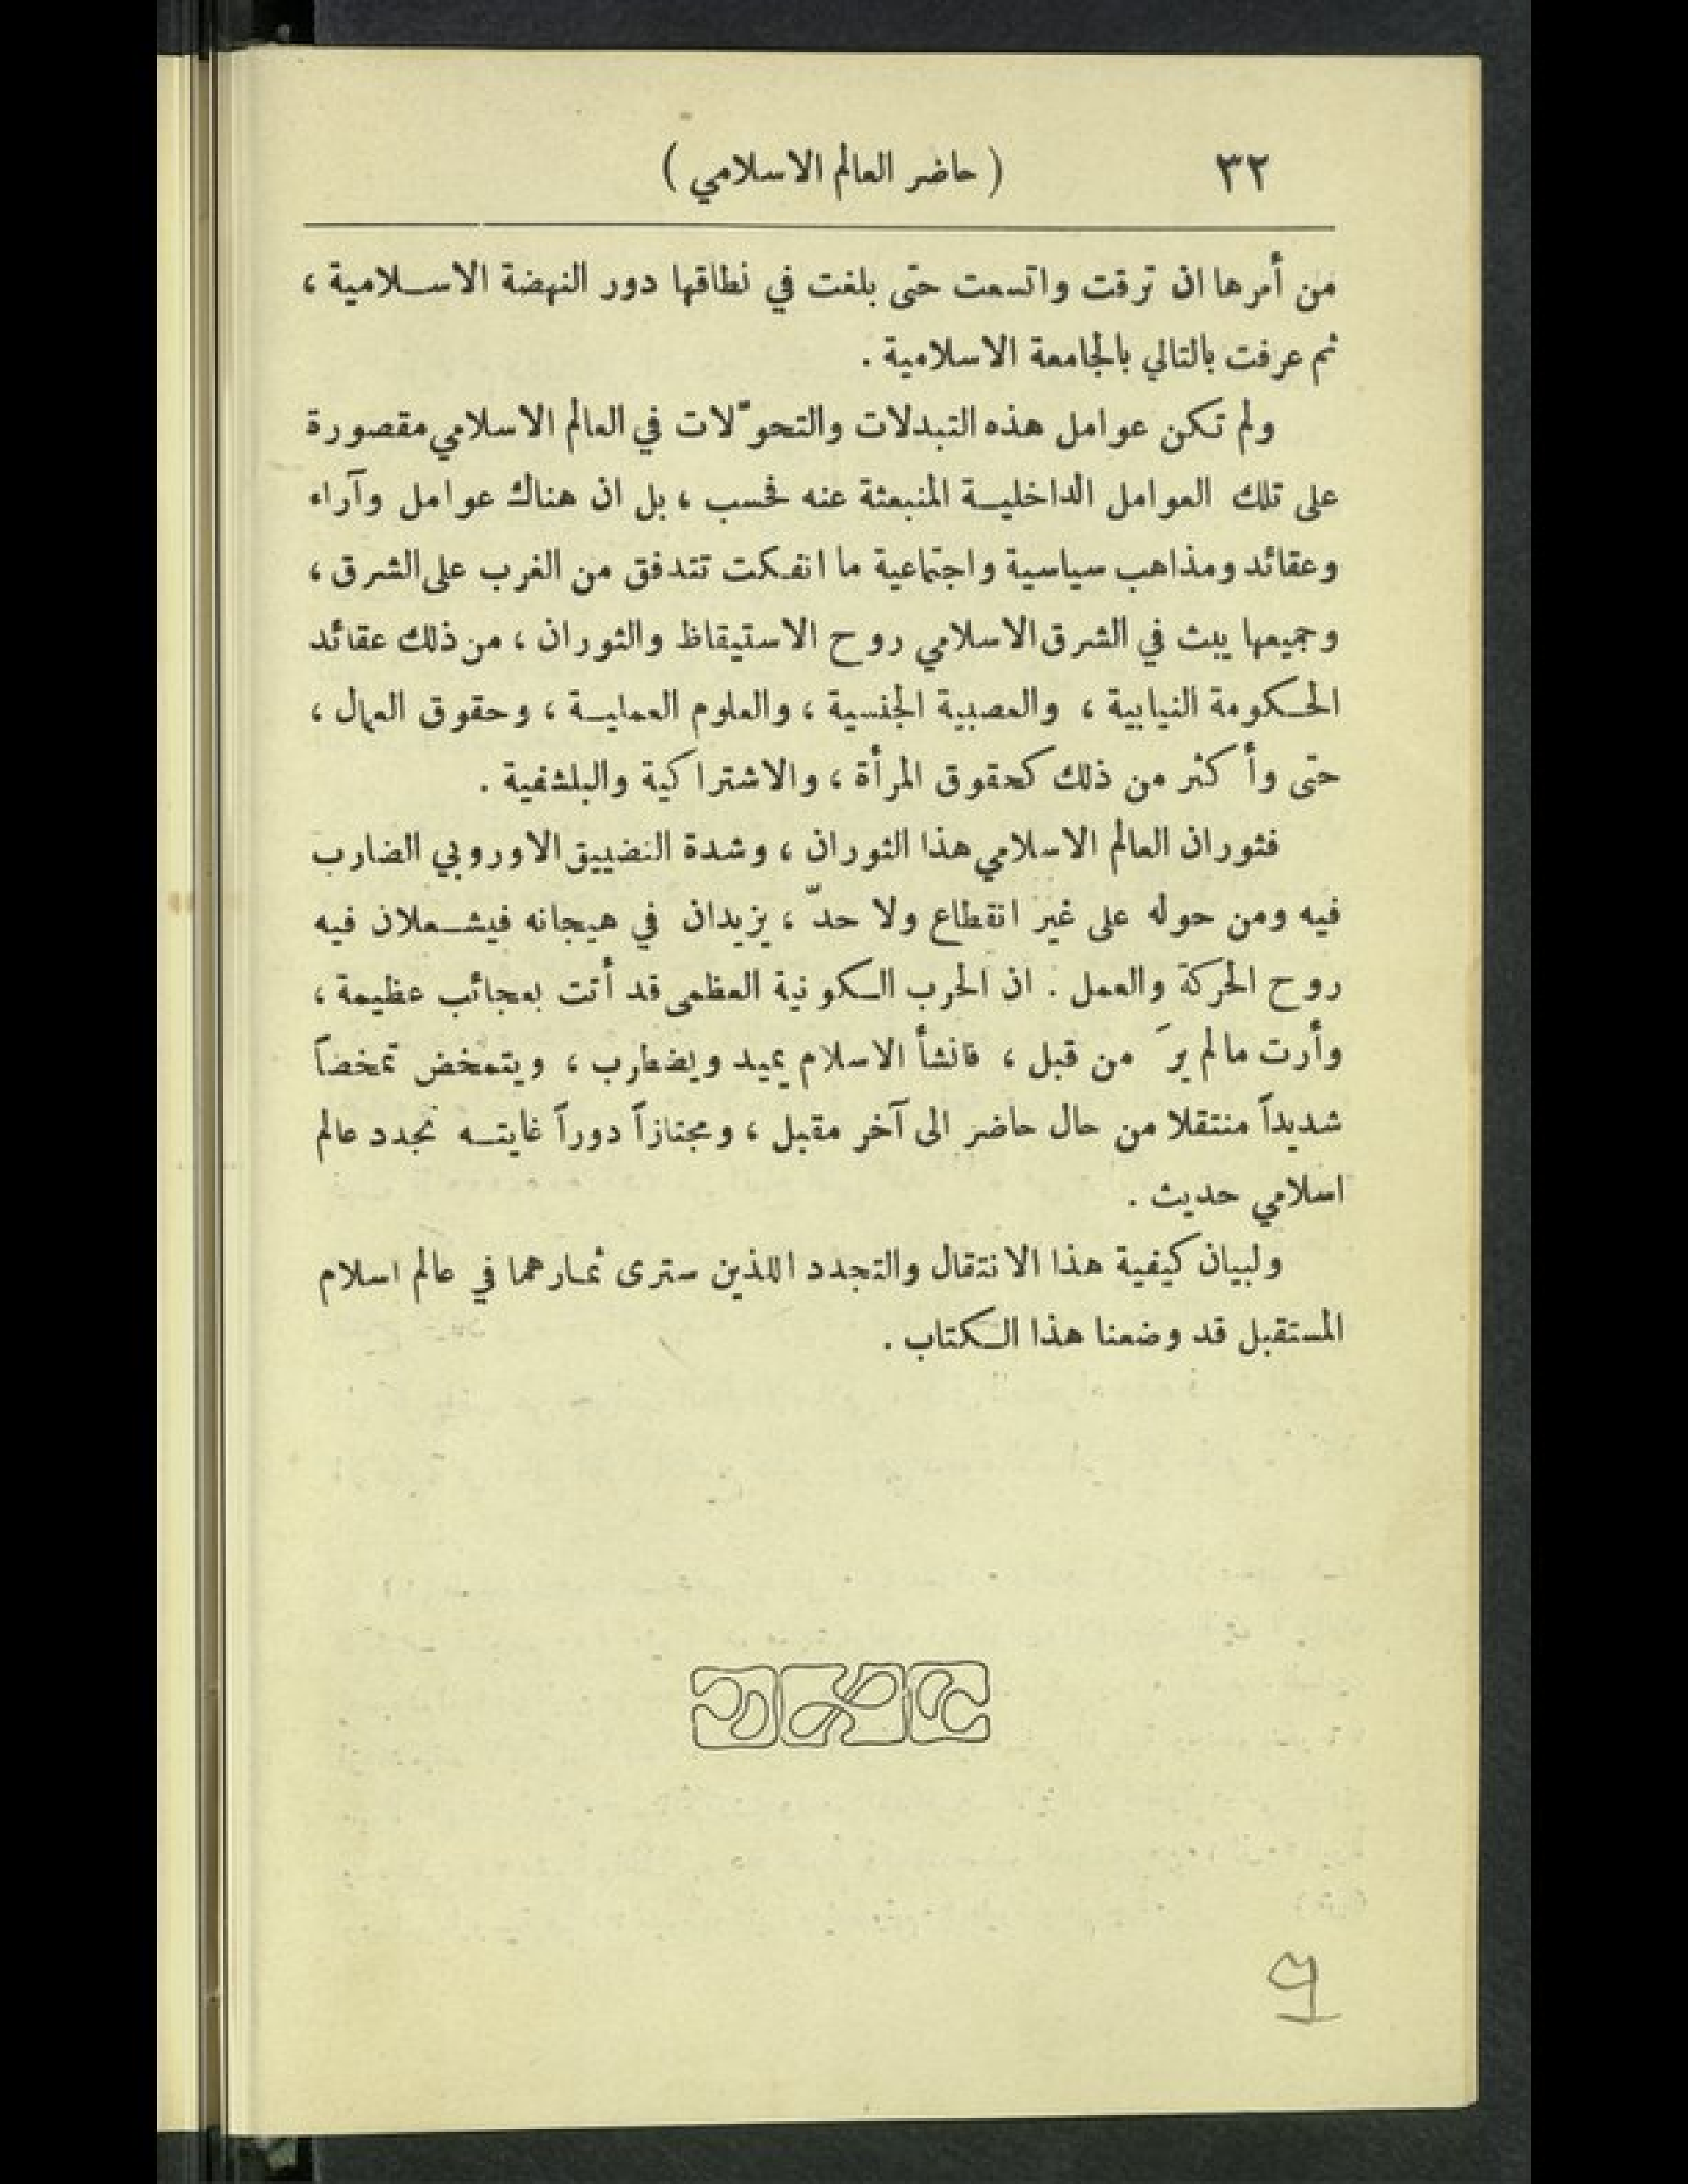 ٣٢
( حاضر العالم الاسلامي )
من أمرها ان ترقت واتسعت حتى بلغت في نطاقها دور النهضة الاسلامية ،
ثم عرفت بالتالي بالجامعة الاسلامية .
ولم تكن عوامل هذه التبدلات والتحوّلات في العالم الاسلامي مقصورة
على تلك العوامل الداخلية المنبعثة عنه فحسب ، بل ان هناك عوامل وآراء
وعقائد ومذاهب سياسية واجتماعية ما انفكت تتدفق من الغرب على الشرق ،
وجميعها يبث في الشرق الاسلامي روح الاستيقاظ والثوران ، من ذلك عقائد
الحكومة النيابية ، والعصبية الجنسية ، والعلوم العملية ، وحقوق العمال ،
حتى وأكثر من ذلك كحقوق المرأة ، والاشتراكية والبلشفية .
فثوران العالم الاسلامي هذا الثوران ، وشدة التضييق الاوروبي الضارب
فيه ومن حوله على غير انقطاع ولا حدّ ، يزيدان في هيجانه فيشعلان فيه
روح الحركة والعمل . ان الحرب الكونية العظمى قد أتت بعجائب عظيمة ،
وأرت مالم يرَ من قبل ، فانشأ الاسلام يميد ويضطرب ، ويتمخض تمخضاً
شديداً منتقلا من حال حاضر الى آخر مقبل ، ومجتازاً دوراً غايته تجدد عالم
اسلامي حديث .
ولبيان كيفية هذا الانتقال والتجدد اللذين سترى ثمارهما في عالم اسلام
المستقبل قد وضعنا هذا الكتاب .